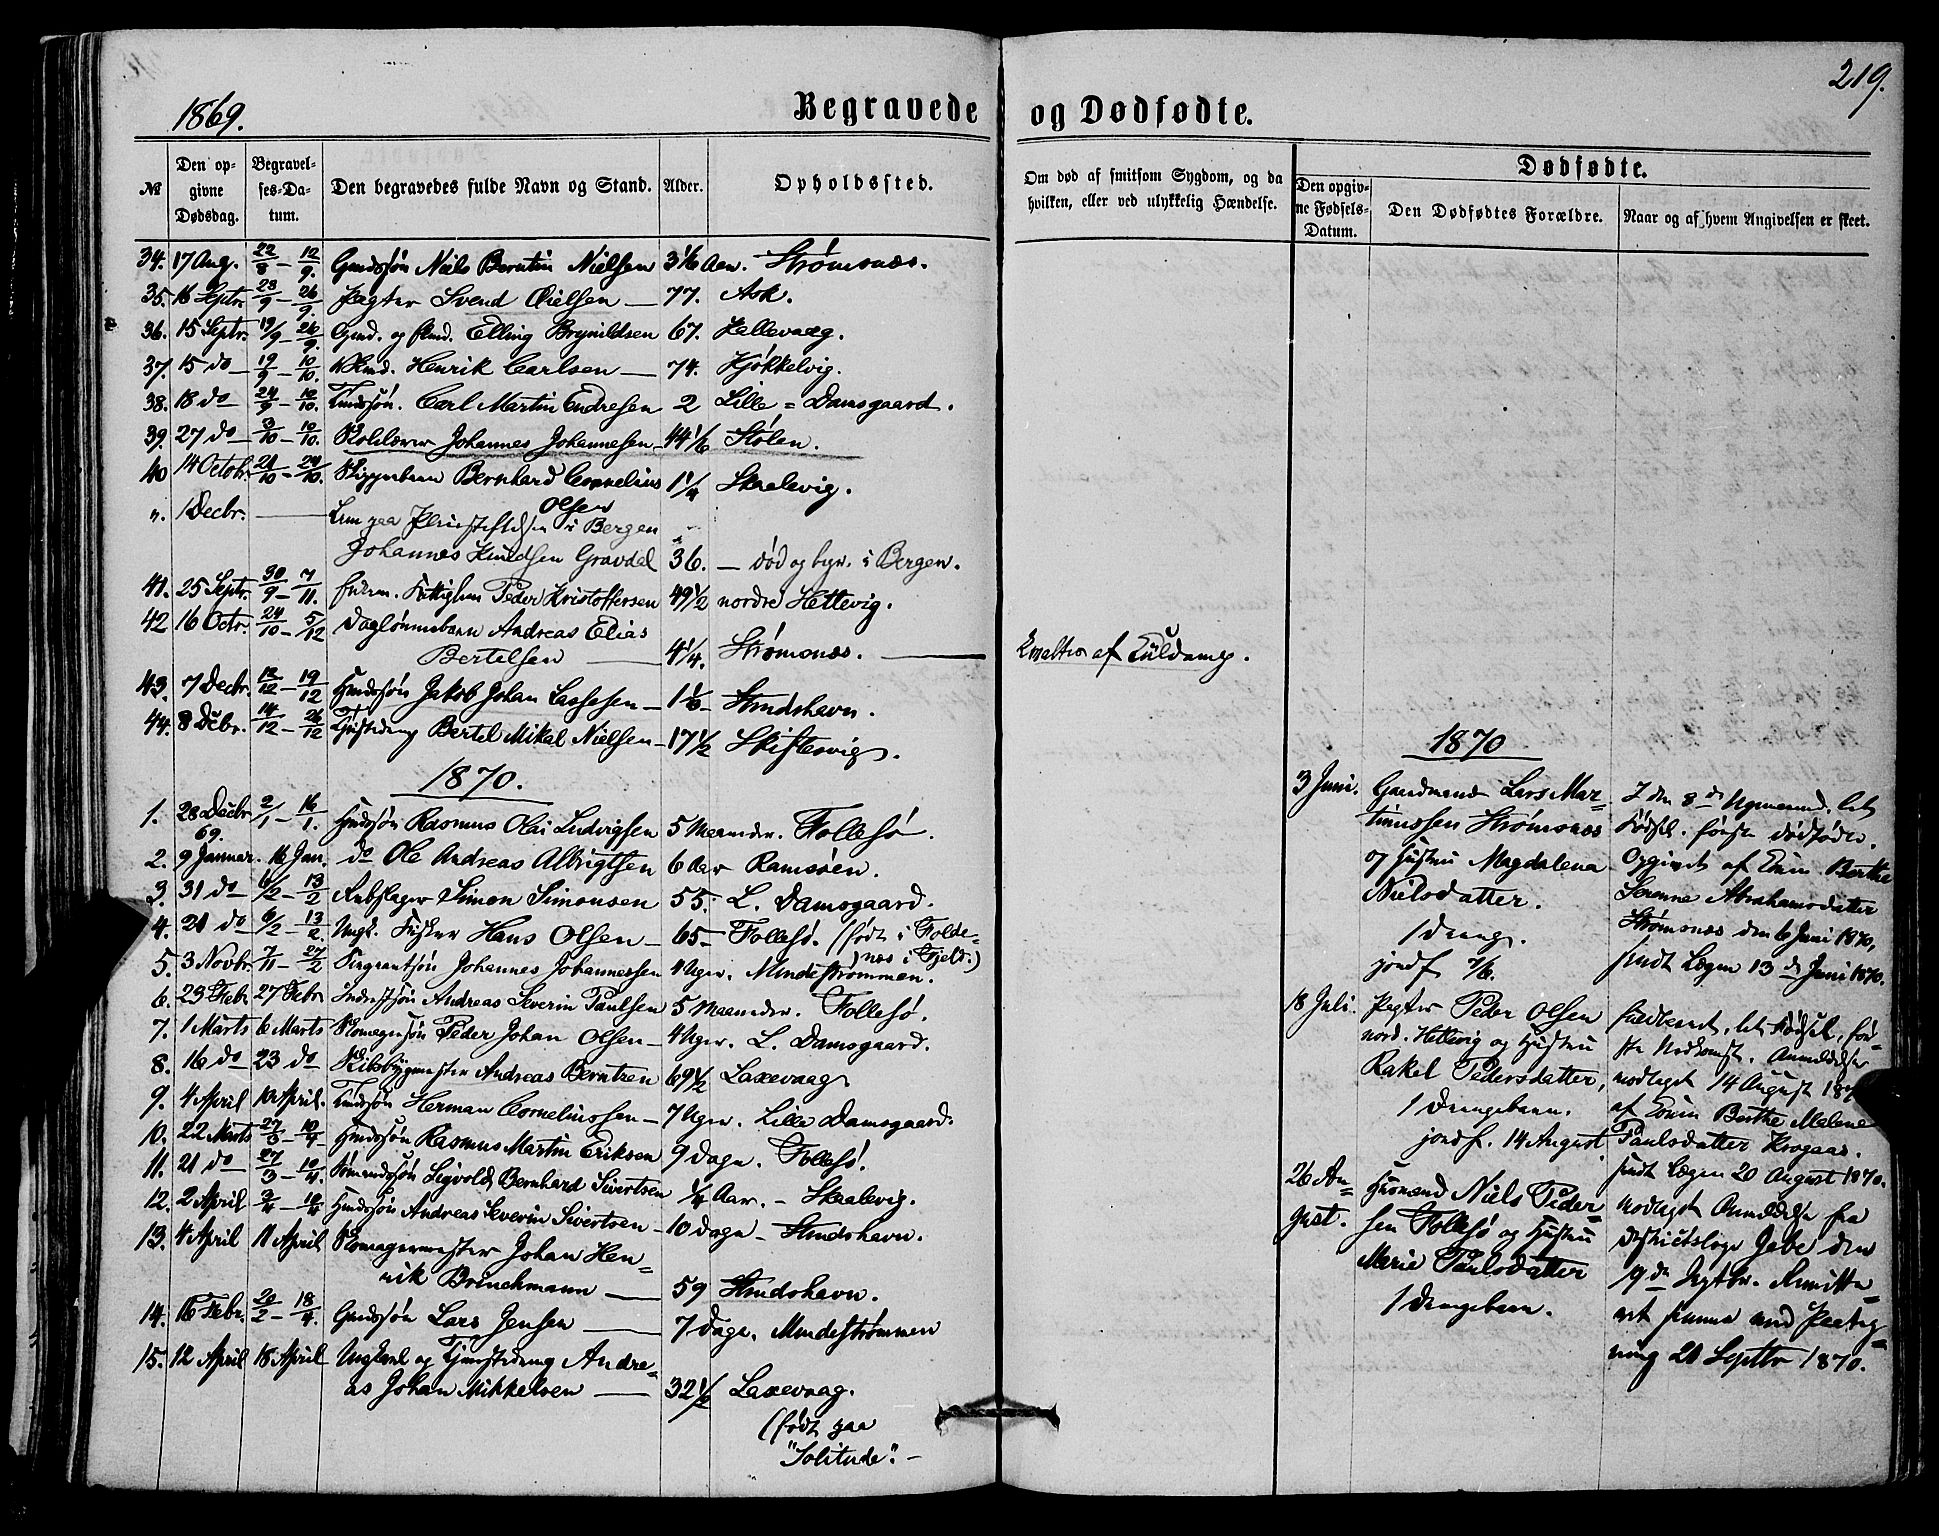 219.
1869.
Begravede og Dødfødte.
№
Den opgivne Dødsdag.
Begravelses-Datum.
Den begravedes fulde Navn og Stand.
Alder.
Opholdssted.
Om død af smitsom Sygdom, og da hvilken, eller ved ulykkelig Hændelse.
Dødfødte.
Den opgivne Fødsels-Datum.
Den Dødfødtes Forældre.
Naar og af hvem Angivelsen er skeet.
34. 17 Aug. 22/8 – 12/9. Gmdssøn Niels Berntin Nielsen 3 1/6 Aar. Strømsnæs.
35. 16 Septr. 23/9 – 26/9. Pagter Svend Olelsen — 77. Ask.
36. 15 Septr. 19/9 – 26/9. Gmd. og Elling Brynildsen 67. Hellevaag.
37. 15 do 19/9 – 10/10. Henrik Carlsen — 74. Kjøkkelvig.
38. 18 do 24/9 – 10/10. Carl Martin Endresen 2 Lille = Damsgaard.
39. 27 do 3/10 – 10/10. Johannes Johannesen 44 1/6 Stølen.
40 14 Octobr. 21/10 – 24/10. Bernhard Cornelius
Olsen 1 1/4 Skaalevig.
". 1 Decbr. — Lem paa Pleiestiftelsen i Bergen
Johannes Knudsen Gravdal 36. – død og begr. i Bergen.
41. 25 Septr. 30/9 – 7/11. Peder Kristoffersen 49 1/2 nordre Hettevig.
42 16 Octr. 24/10 – 5/12 Andreas Elias
Bertelsen — 4 1/4. Strømsnæs. — af
43. 7 Decbr. 12/12 – 19/12 Hmdssøn Jakob Johan Lassesen — 1 1/6 – Hmdshavn.
44. 8 Decbr. 14/12 – 26/12 Bertel Mikal Nielsen — 17 1/2 Skiftesvig.
1870.
1. 28 Decbr 69. 2/1 – 16/1. Hmdssøn Rasmus Olai Ludvigsen 5 Maaneder. Follesø.
2. 9 Januar. 16 Jan. do Ole Andreas Albrigtsen 6 Aar Ramsøen.
3. 31 do 6/2 – 13/2 Simon Simonsen 55. L. Damsgaard.
4. 21 do 6/2 – 13/2 Ungk. Fisker Hans Olsen — 65 – Follesø. (født i Foldenæs i Fjeld.)
5. 3 Novbr. 7/11 – 27/2 Johannes Johannessen 4 Uger. Mindestrømmen.
6. 23 Febr. 27 Febr Andreas Severin Paulsen 5 Maaneder. Follesø.
7. 1 Marts 6 Marts Peder Johan Olsen — 4 Uger. L. Damsgaard.
8. 16 do 23 do Skibsbygmester Andreas Berntzen 69 1/2 Laxevaag
9. 4 April 10 April. Herman Corneliussen — 7 Uger. Lille Damsgaard.
10. 22 Marts 27/3 – 10/4 Hmdssøn Rasmus Martin Eriksen 9 Dage. Follesø.
11. 21 do 27/3 – 10/4. Sømandssøn Sigvold Bernhard Sivertsen 1/4 Aar. – Skaalevig.
12. 2 April 3/4 – 10/4 Hmdssøn Andreas Severin Sivertsen – 10 Dage – Hmdshavn.
13. 4 April 11 April Skomagermester Johan Henrik
Brinchmann — 59 Hmdshavn.
14. 16 Febr. 20/2 – 18/4. Gmdssøn Lars Jensen — 7 Dage. Mindestrømmen
15. 12 April 18 April Ungkarl og Tjenstedreng Andreas
Johan Mikkelsen — 32 1/2 Laxevaag.
(født paa
"Solitude". –
1870
3 Juni. Gaardmand Lars Martinussen Strømsnæs
og Hustru Magdalena
Nielsdatter.
1 Dreng.
jordf. 7/6.
I den 8de let
Fødsel. første dødfødte.
Opgivet af Berthe
Serenne Abrahamsdatter
Strømsnæs den 6 Juni 1870,
sendt Lægen 13de Juni 1870.
18 Juli. Pagter Peder Olsen
nord. Hettevig og Hustru
Rakel Pedersdatter,
1 Drengebarn.
jordf. 14 August.
fuldbaaret, let Fødsel, første
Nedkomst. Anmeldelse
modtaget 14 August 1870
af Berthe Malene
Paulsdatter Krogaas.
sendt Lægen 20 August 1870.
26 August. Husmand Niels Pedersen
Follesø og Hustru
Marie Paulsdatter
1 Drengebarn.
modtaget Anmeldelse fra
Districtslæge Jebe den
19de Septbr.
samme med Paategning
21 Septbr 1870.